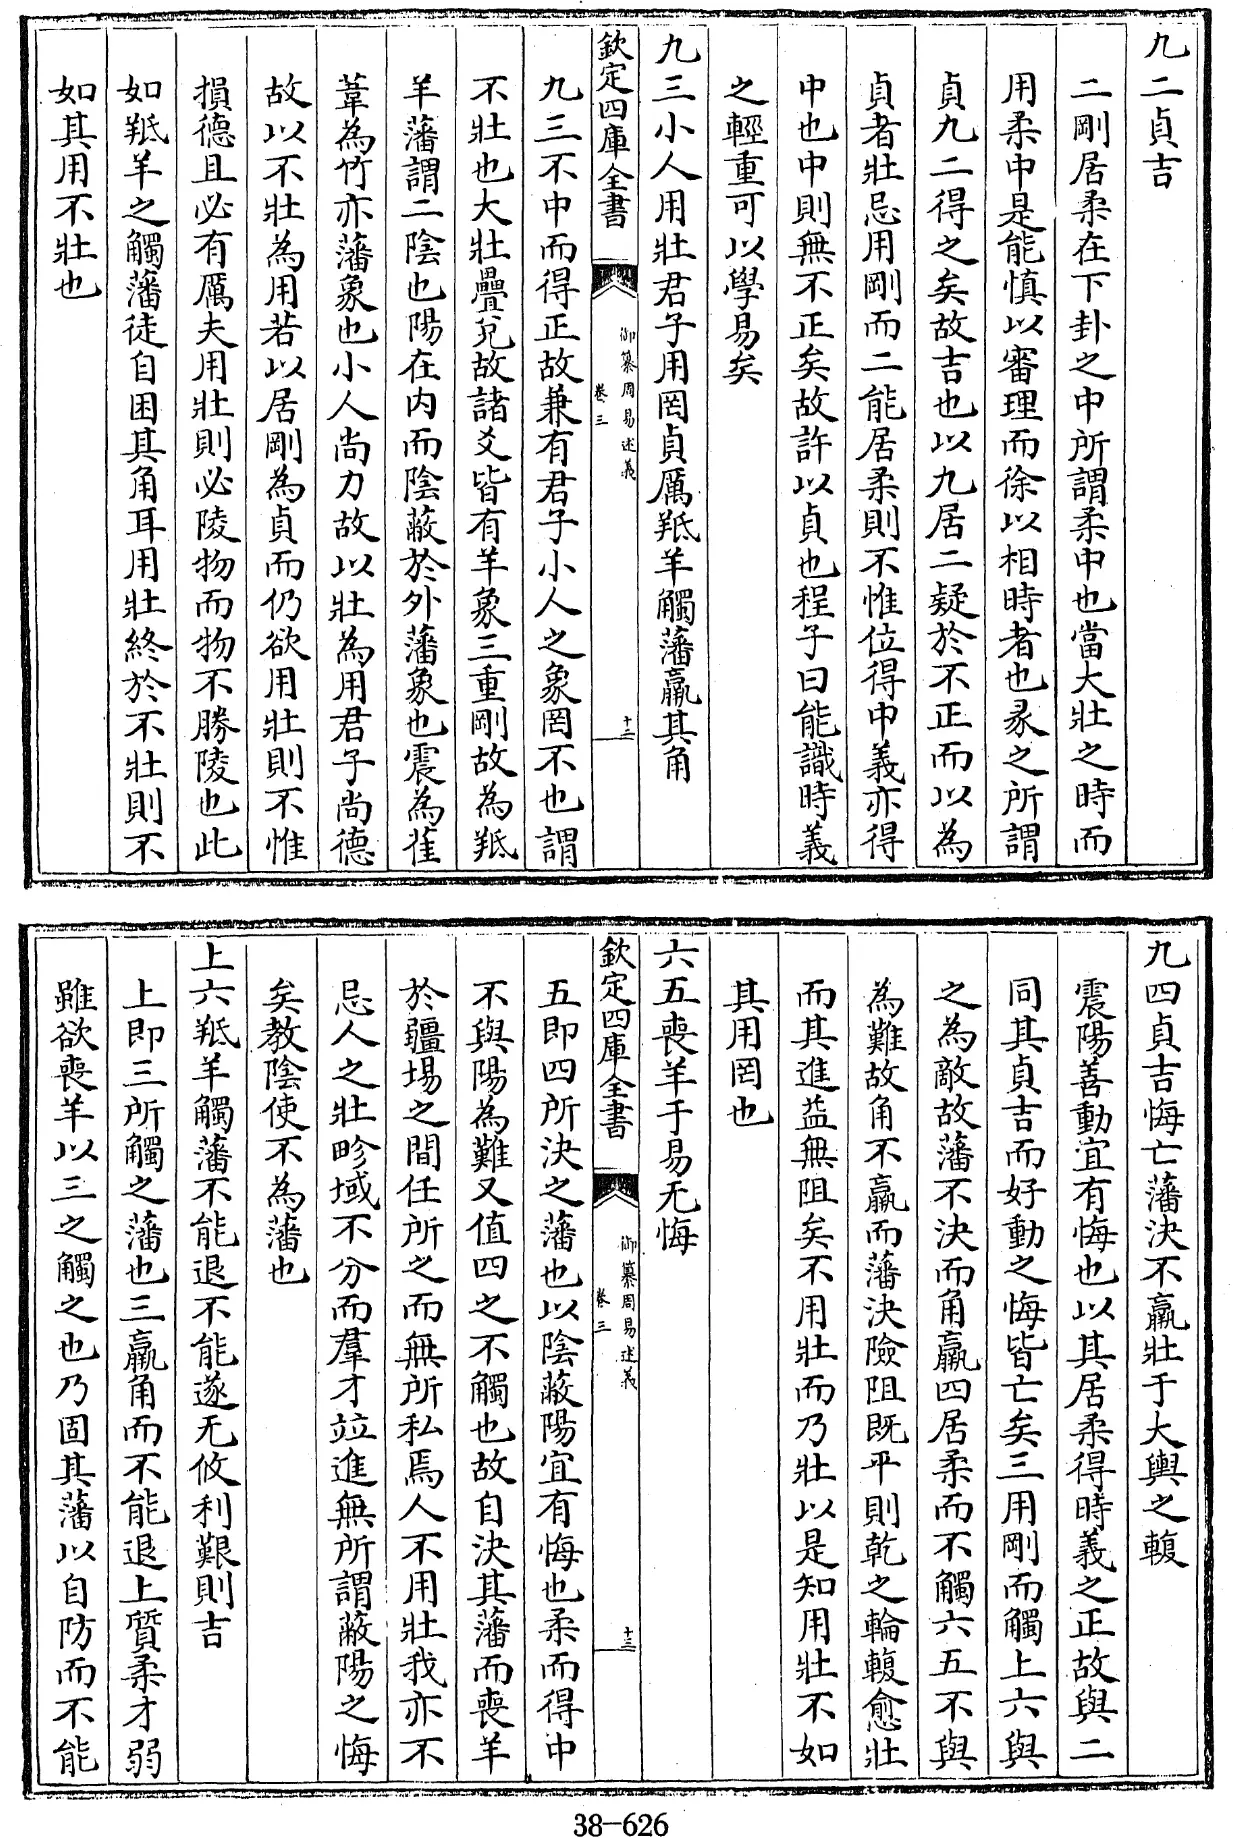 九二貞吉
二剛居柔在下卦之中所謂柔中也當大壯之時而
用柔中是能慎以審理而徐以相時者也彖之所謂
貞九二得之矣故吉也以九居二疑於不正而以為
貞者壯忌用剛而二能居柔則不惟位得中義亦得
中也中則無不正矣故許以貞也程子曰能識時義
之輕重可以學易矣
九三小人用壯君子用罔貞厲羝羊觸藩羸其角
欽定四庫全書
御纂周易述義
卷三
十二
九三不中而得正故兼有君子小人之象罔不也謂
不壯也大壯疊兌故諸爻皆有羊象三重剛故為羝
羊藩謂二陰也陽在内而陰蔽於外藩象也震為萑
葦為竹亦藩象也小人尚力故以壯為用君子尚德
故以不壯為用若以居剛為貞而仍欲用壯則不惟
損德且必有厲夫用壯則必陵物而物不勝陵也此
如羝羊之觸藩徒自困其角耳用壯終於不壯則不
如其用不壯也
九四貞吉悔亡藩決不羸壯于大輿之輹
震陽善動宜有悔也以其居柔得時義之正故與二
同其貞吉而好動之悔皆亡矣三用剛而觸上六與
之為敵故藩不決而角羸四居柔而不觸六五不與
為難故角不羸而藩決險阻既平則乾之輪輹愈壯
而其進益無阻矣不用壯而乃壯以是知用壯不如
其用罔也
六五喪羊于易无悔
欽定四庫全書
御纂周易述義
卷三
十三
五即四所決之藩也以陰蔽陽宜有悔也柔而得中
不與陽為難又值四之不觸也故自決其藩而喪羊
於疆埸之間任所之而無所私焉人不用壯我亦不
忌人之壯畛域不分而羣才竝進無所謂蔽陽之悔
矣教陰使不為藩也
上六羝羊觸藩不能退不能遂无攸利艱則吉
上即三所觸之藩也三羸角而不能退上質柔才弱
雖欲喪羊以三之觸之也乃固其藩以自防而不能
38-626